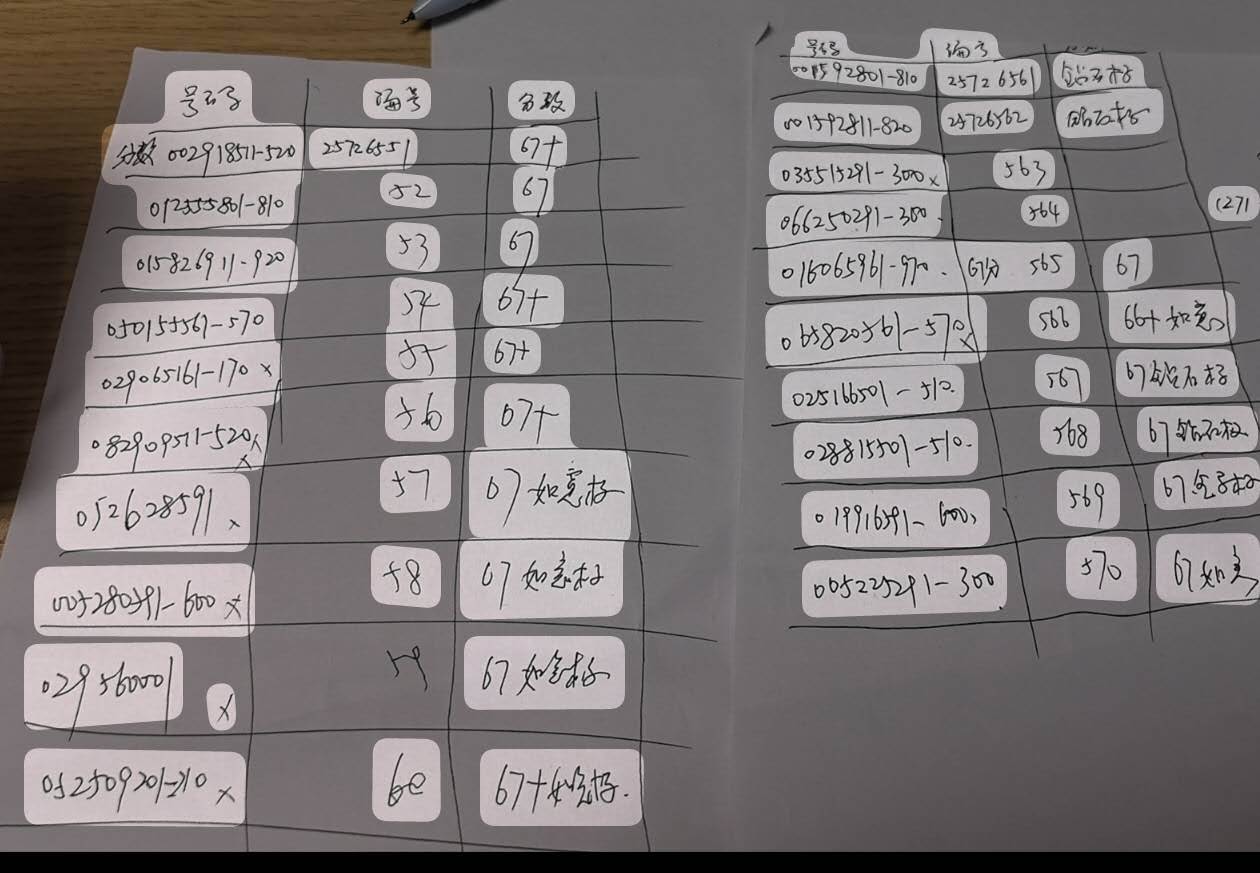 号码 编号 分数
分数 002918511-520 25726551 67+
012555801-810 52 67
015826911-920 53 67
050155561-570 54 67+
029065161-170 x 55 67+
082909511-520 x x 56 67+
052628591 x 57 67 如意标
005280591-600 x 58 67 如意标
029560001 x 59 67 如意标
052509201-210 x 60 67+如意标.
号码 编号
001592801-810 25726561 钻石标
001592811-820 25726562 钻石标
035515291-300 x 563
066250291-300. 564
1271
016065961-970. 67分 565 67
065820561-570 x 566 66+ 如意
025166501-510. 567 67钻石标
028815501-510. 568 67钻石标
019916591-600 569 67金子标
005225291-300 570 67如意